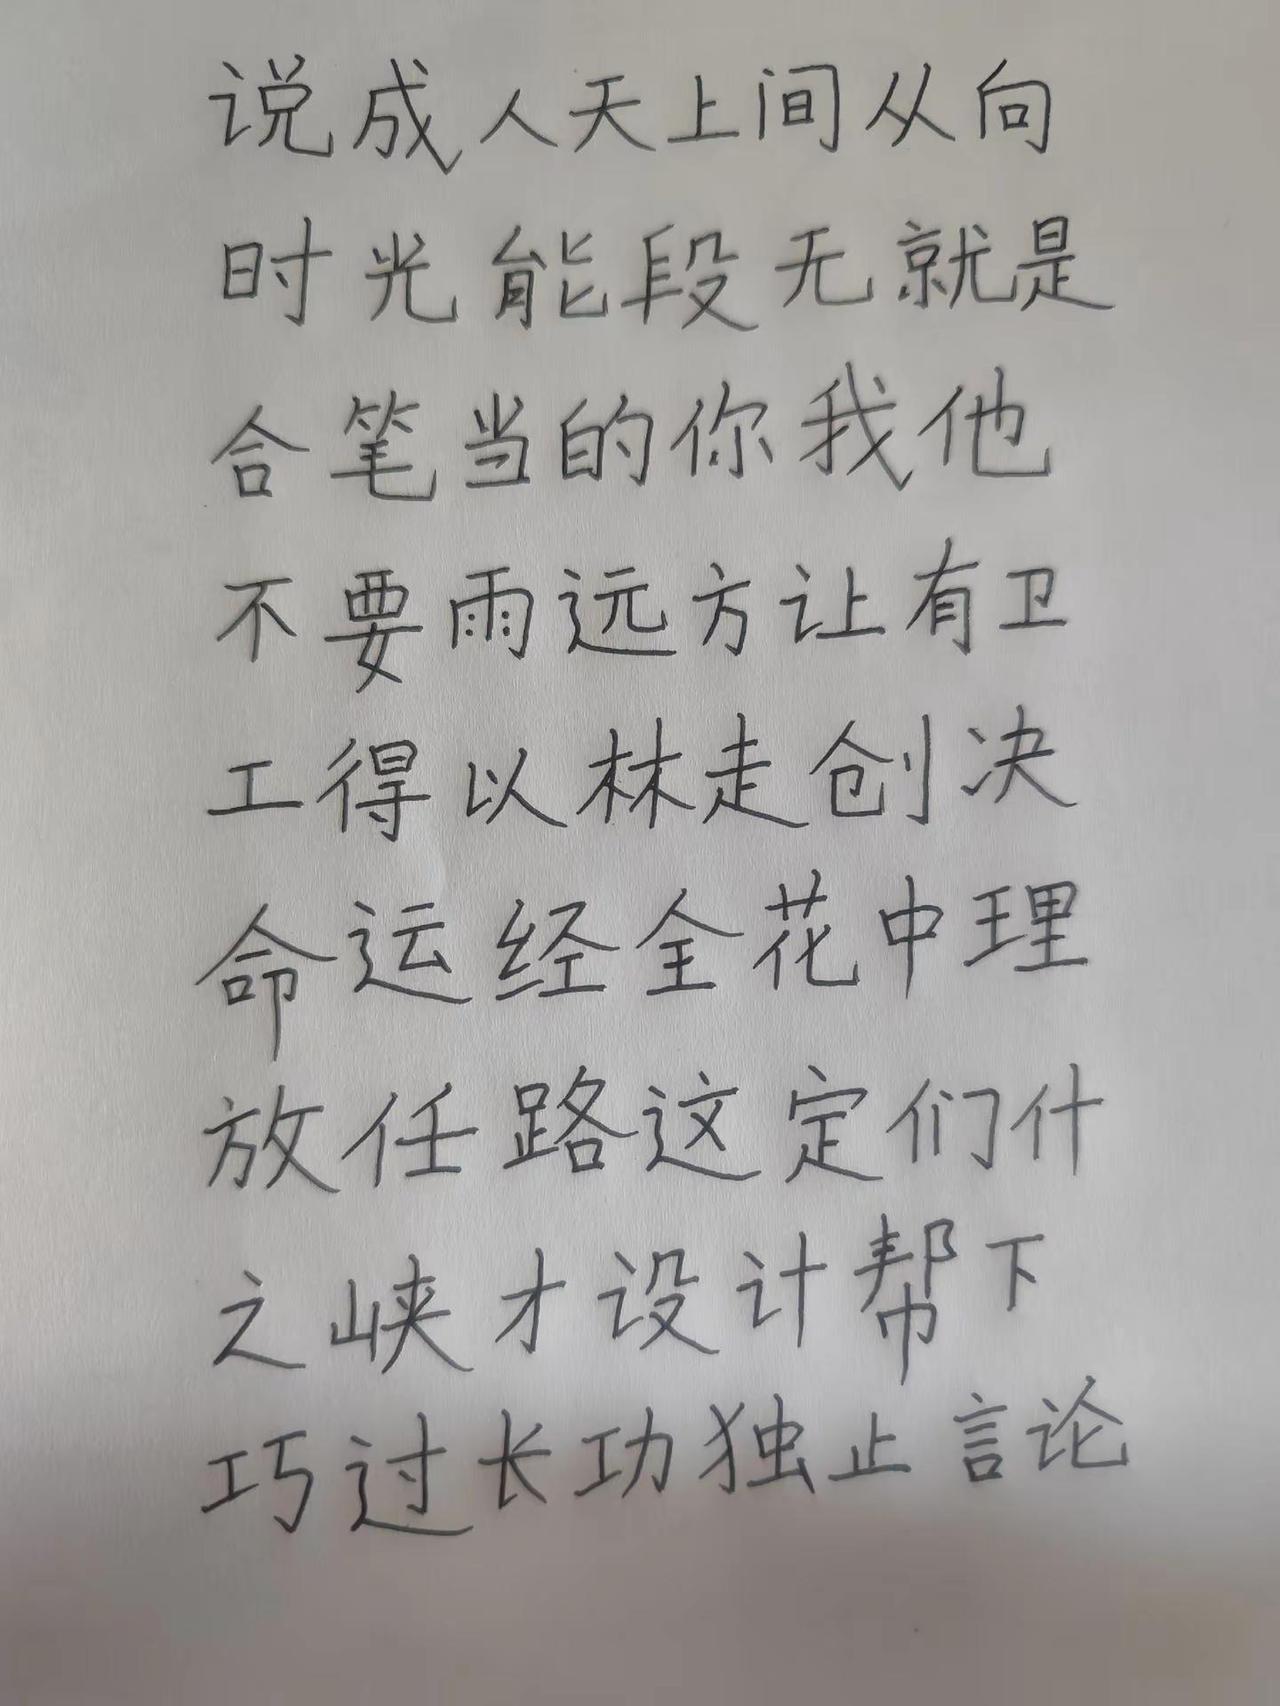 说成人天上间从向
时光能段无就是
合笔当的你我他
不要雨远方让有卫
工得以林走创决
命运经全花中理
放任路这定们什
之峡才设计帮下
巧过长功独止言论